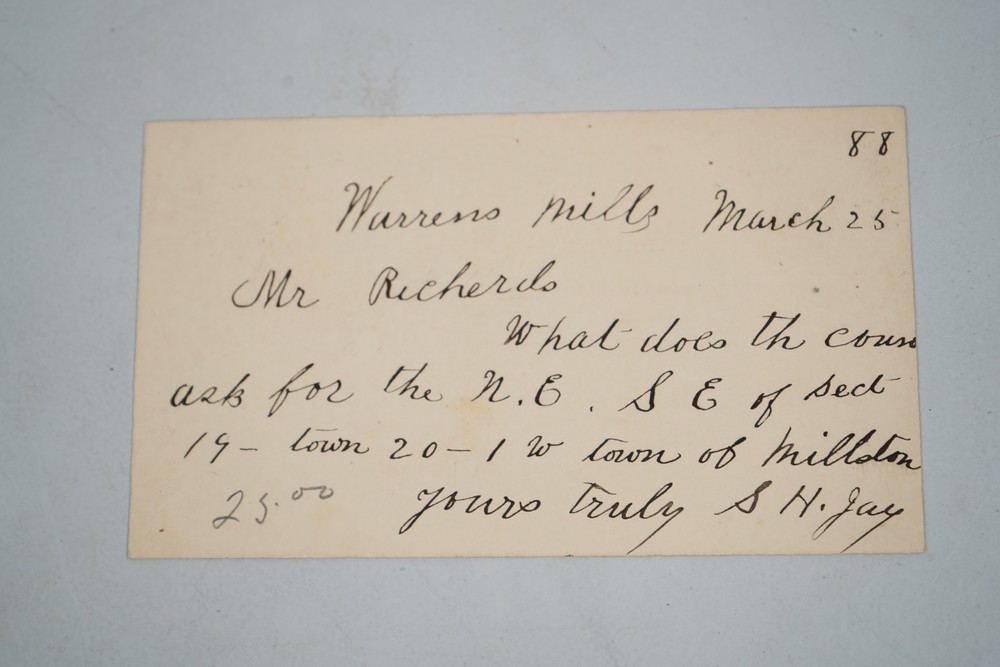 88
Warrens Mills March 25
Mr Richerds
What does th coun
ask for the N.E. S E of Sect
19 - town 20 - 1 W town of Millston
25.00 Yours truly S H. Jay